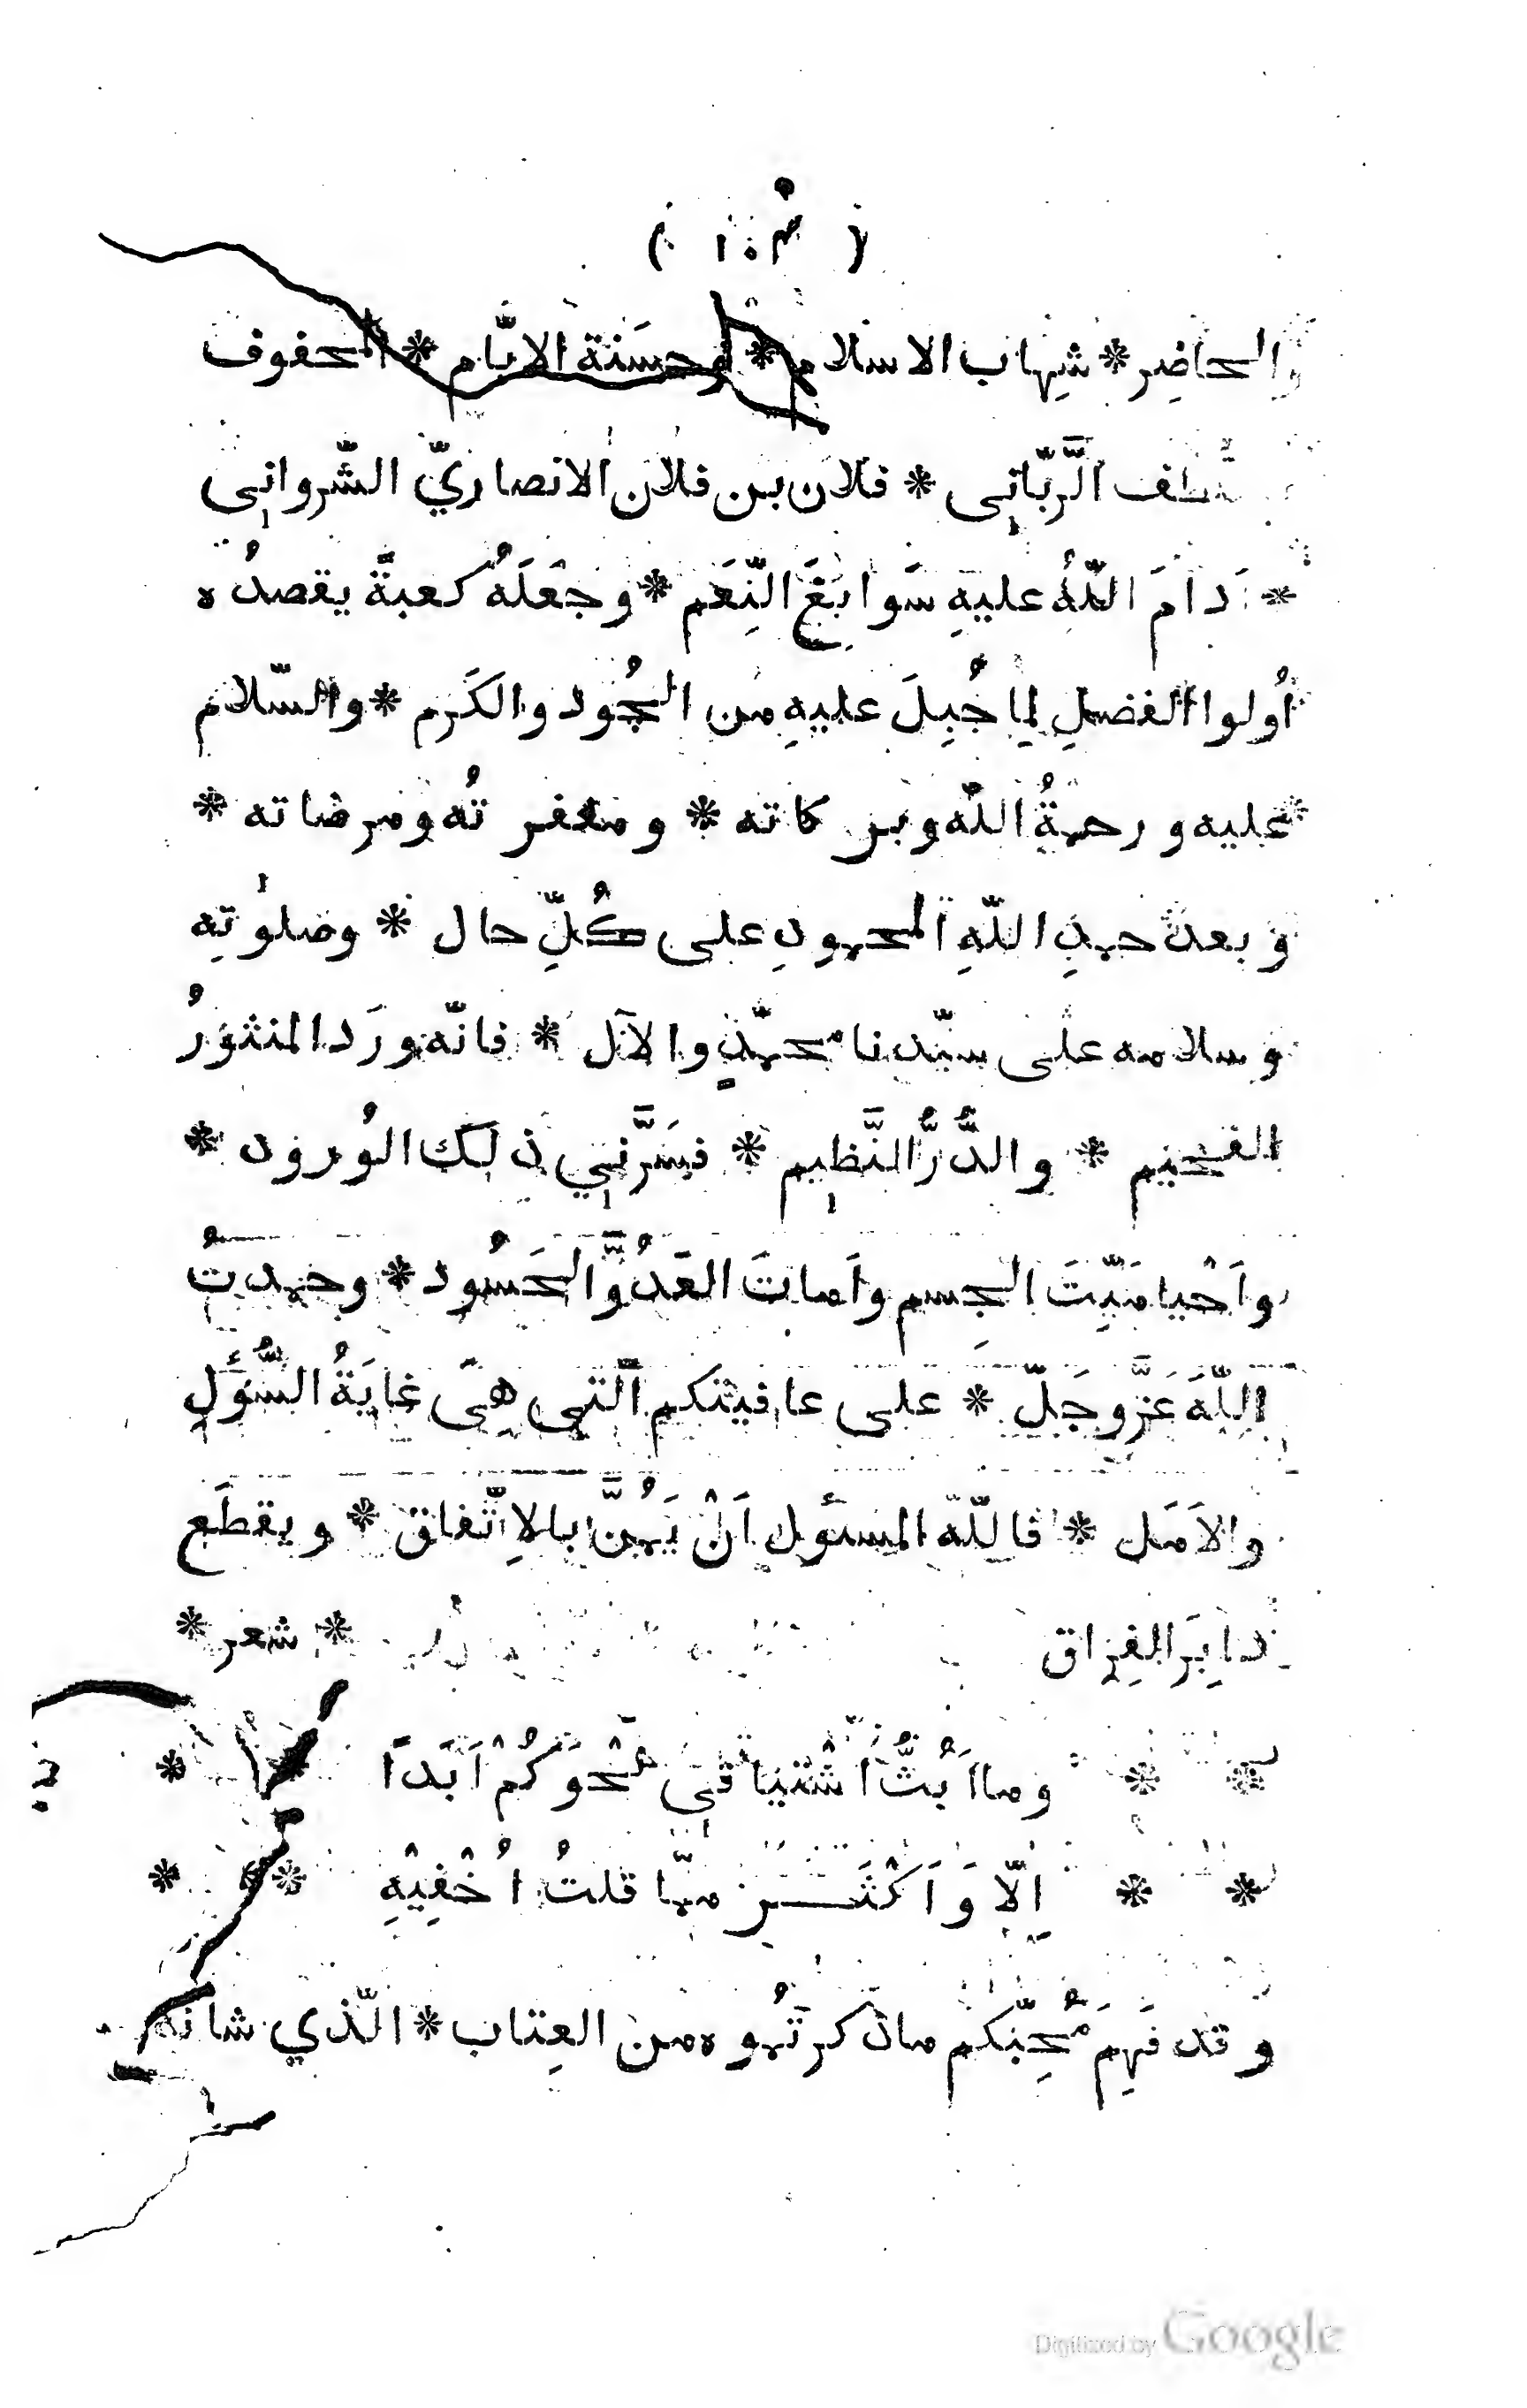 ( ١٠٣ )
والحاضِر * شِهاب الاسلام * وحسَنة الايّام * المحفوف
الرَّبّانى * فلان بن فلان الانصاريّ الشّروانى
* اَدامَ اللّهُ عليهِ سَوابغَ النِّعَم * وجْعَلَهُ كعبةً يقصدُه
اُولوا الفضلِ لِما جُبِلَ عليهِ من الجُود والكَرم * والسّلام
عليه ورحمةُ اللّه وبركاته * ومغفرتُه ومرضاته *
وبعد حمدِ اللّهِ المحمودِ على كُلِّ حال * وصلوٰتِه
وسلامه على سيّدنا محمّدٍ والآل * فانّه ورَد المنثورُ
الفخيم * والدُّرُّ النَّظيم * فسَرَّنى ذلك الوُرود *
واَحْيا مَيّتَ الجسم واَماتَ العَدُوَّ الحَسُود * وحمدتُ
اللّهَ عَزّ وجَلّ * على عافيتكم الّتى هِىَ غايَةُ السُّؤَلِ
والاَمَل * فاللّه المسئول اَنْ يَمُنَّ بالاِتّفاق * ويقطَع
دابِرَ الفِراق * شعر *
* * وما اَبُثُّ اشْتياقى نَحْوَكُمْ اَبَداً * *
* * اِلّا وَاَكْثَــر ممّا قلتُ اُخْفِيْهِ * *
وقد فَهِمَ مُحِبّكم ما ذكرتُموه من العِتاب * الّذي شانه
Digitized by Google